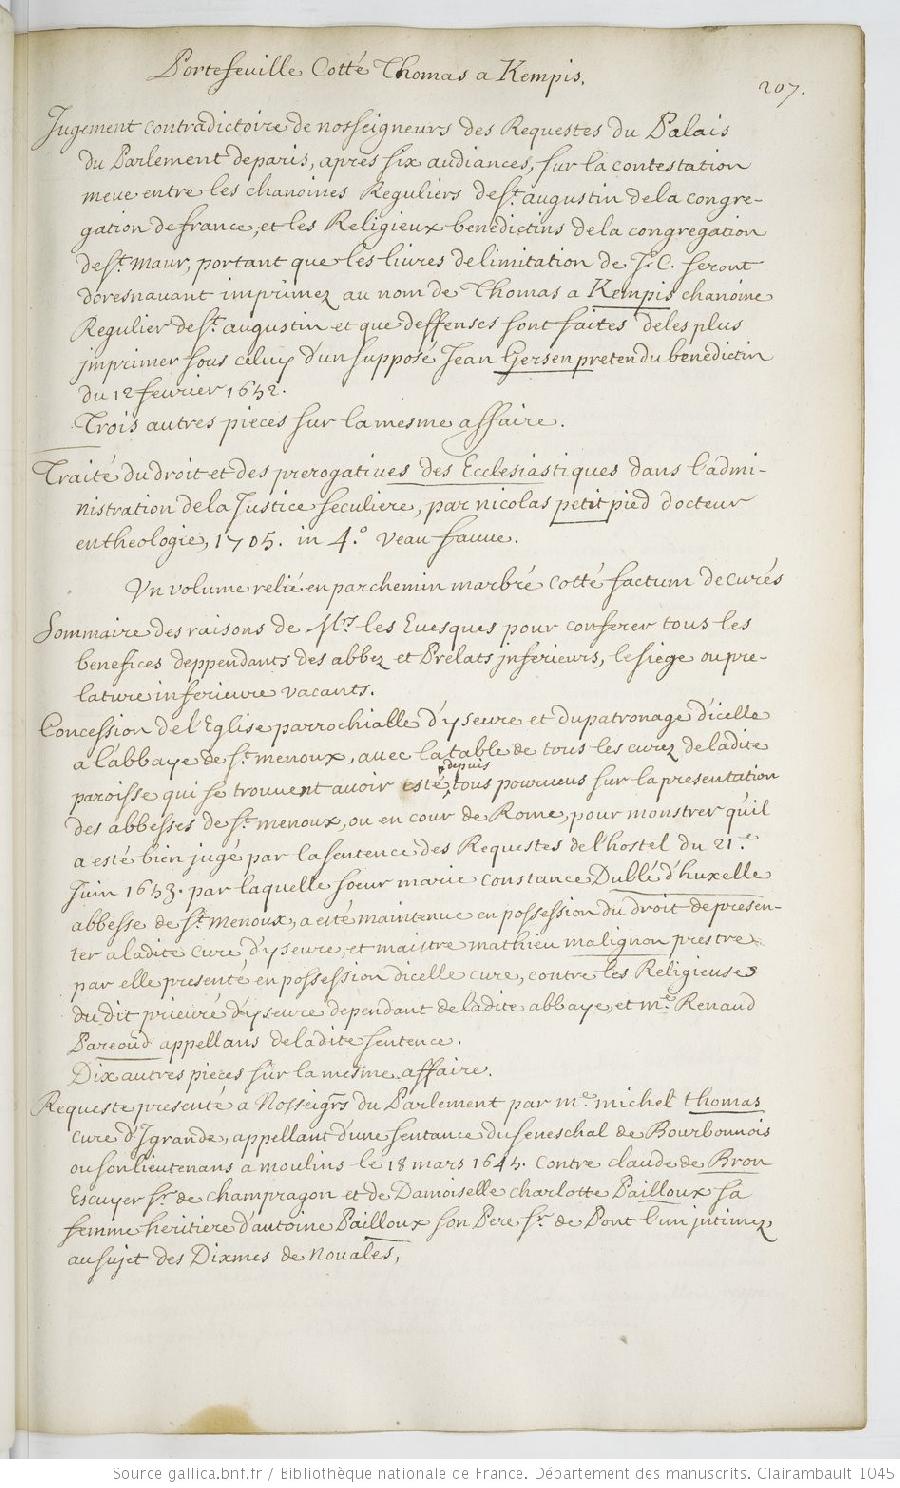 Portefeuille Cotté Thomas a Kempis.
207.
Jugement contradictoire de nosseigneurs des Requestes du Palais
du Parlement de paris, apres six audiances, sur la contestation
meue entre les chanoines Reguliers de St. augustin de la congre-
gation de france, et les Religieux benedictins de la congregation
de St. Maur, portant que les livres de limitation de J. C. seront
doresnavant imprimez au nom de Thomas a Kempis chanoine
Regulier de St. augustin et que deffenses sont faites de les plus
jmprimer sous celuy d'un supposé Jean Gersen pretendu benedictin
du 12 fevrier 1652.
Trois autres pieces sur la mesme affaire.
Traité du droit et des prerogatives des Ecclesiastiques dans l'admi-
nistration de la Justice seculiere, par nicolas petit pied docteur
en theologie, 1705. in 4.° veau fauve.
Un volume relié en parchemin marbré cotté factum de curés
Sommaire des raisons de Mrs. les Evesques pour conferer tous les
benefices deppendants des abbez et Prelats jnferieurs, le siege ou pre-
lature inferieure vacants.
Concession de l'Eglise parrochialle d'yseure et du patronage d'icelle
a l'abbaye de St. menoux, avec la table de tous les curez de ladite
paroisse qui se trouvent avoir esté depuis tous pourveus sur la presentation
des abbesses de St. menoux, ou en cour de Rome, pour monstrer qu'il
a esté bien jugé par la sentence des Requestes de l'hostel du 21.e
Juin 1653. par laquelle soeur marie constance Dublé d'huxelle
abbesse de St. Menoux, a esté maintenue en possession du droit de presen-
ter a ladite cure d'yseure, et maistre mathieu malignon prestre
par elle presenté en possession dicelle cure, contre les Religieuses
du dit prieuré d'yseure dependant de ladite abbaye, et me. Renaud
Pareoud appellans de ladite sentence.
Dix autres pieces sur la mesme affaire.
Requeste presenté a Nosseigrs du Parlement par me. michel thomas
cure d'Jgrande, appellant d'une sentance du seneschal de Bourbonnois
ou son lieutenans a moulins le 18 mars 1645. contre claude de Bron
Escuyer sr. de champragon et de Damoiselle charlotte Pailloux sa
femme heritiere d'antoine Pailloux son Pere sr. de Pont l'un jntimez
au sujet des Dixmes de Novales,
Source gallica.bnf.fr / Bibliothèque nationale de France. Département des manuscrits. Clairambault 1045